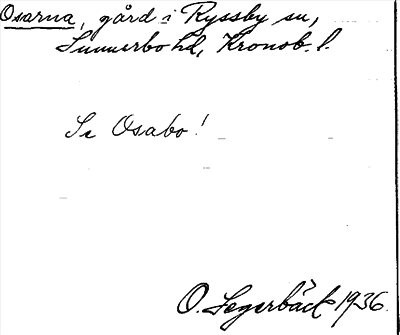 Osarna, gård i Ryssby sn,
Sunnerbo hd, Kronob. l.
Se Osabo!
O. Segerbäck 1936.